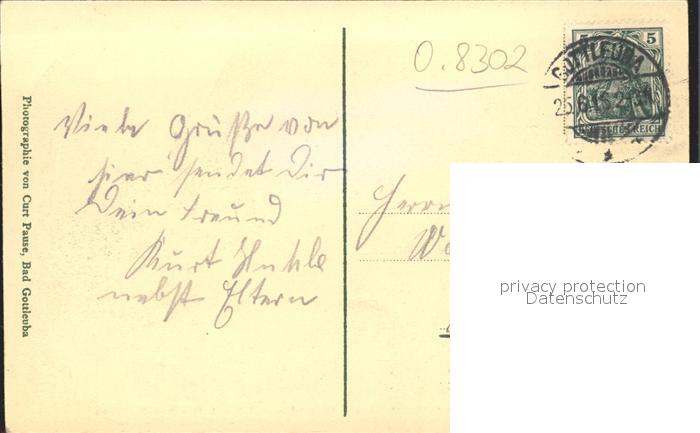 O.8302
5
GOTTLEUBA
DEUTSCHES REICH
Viele Grüße von
hier sendet Dir
Dein Freund
Kurt
nebst Eltern
Herrn
Photographie von Curt Pause, Bad Gottleuba
privacy protection
Datenschutz